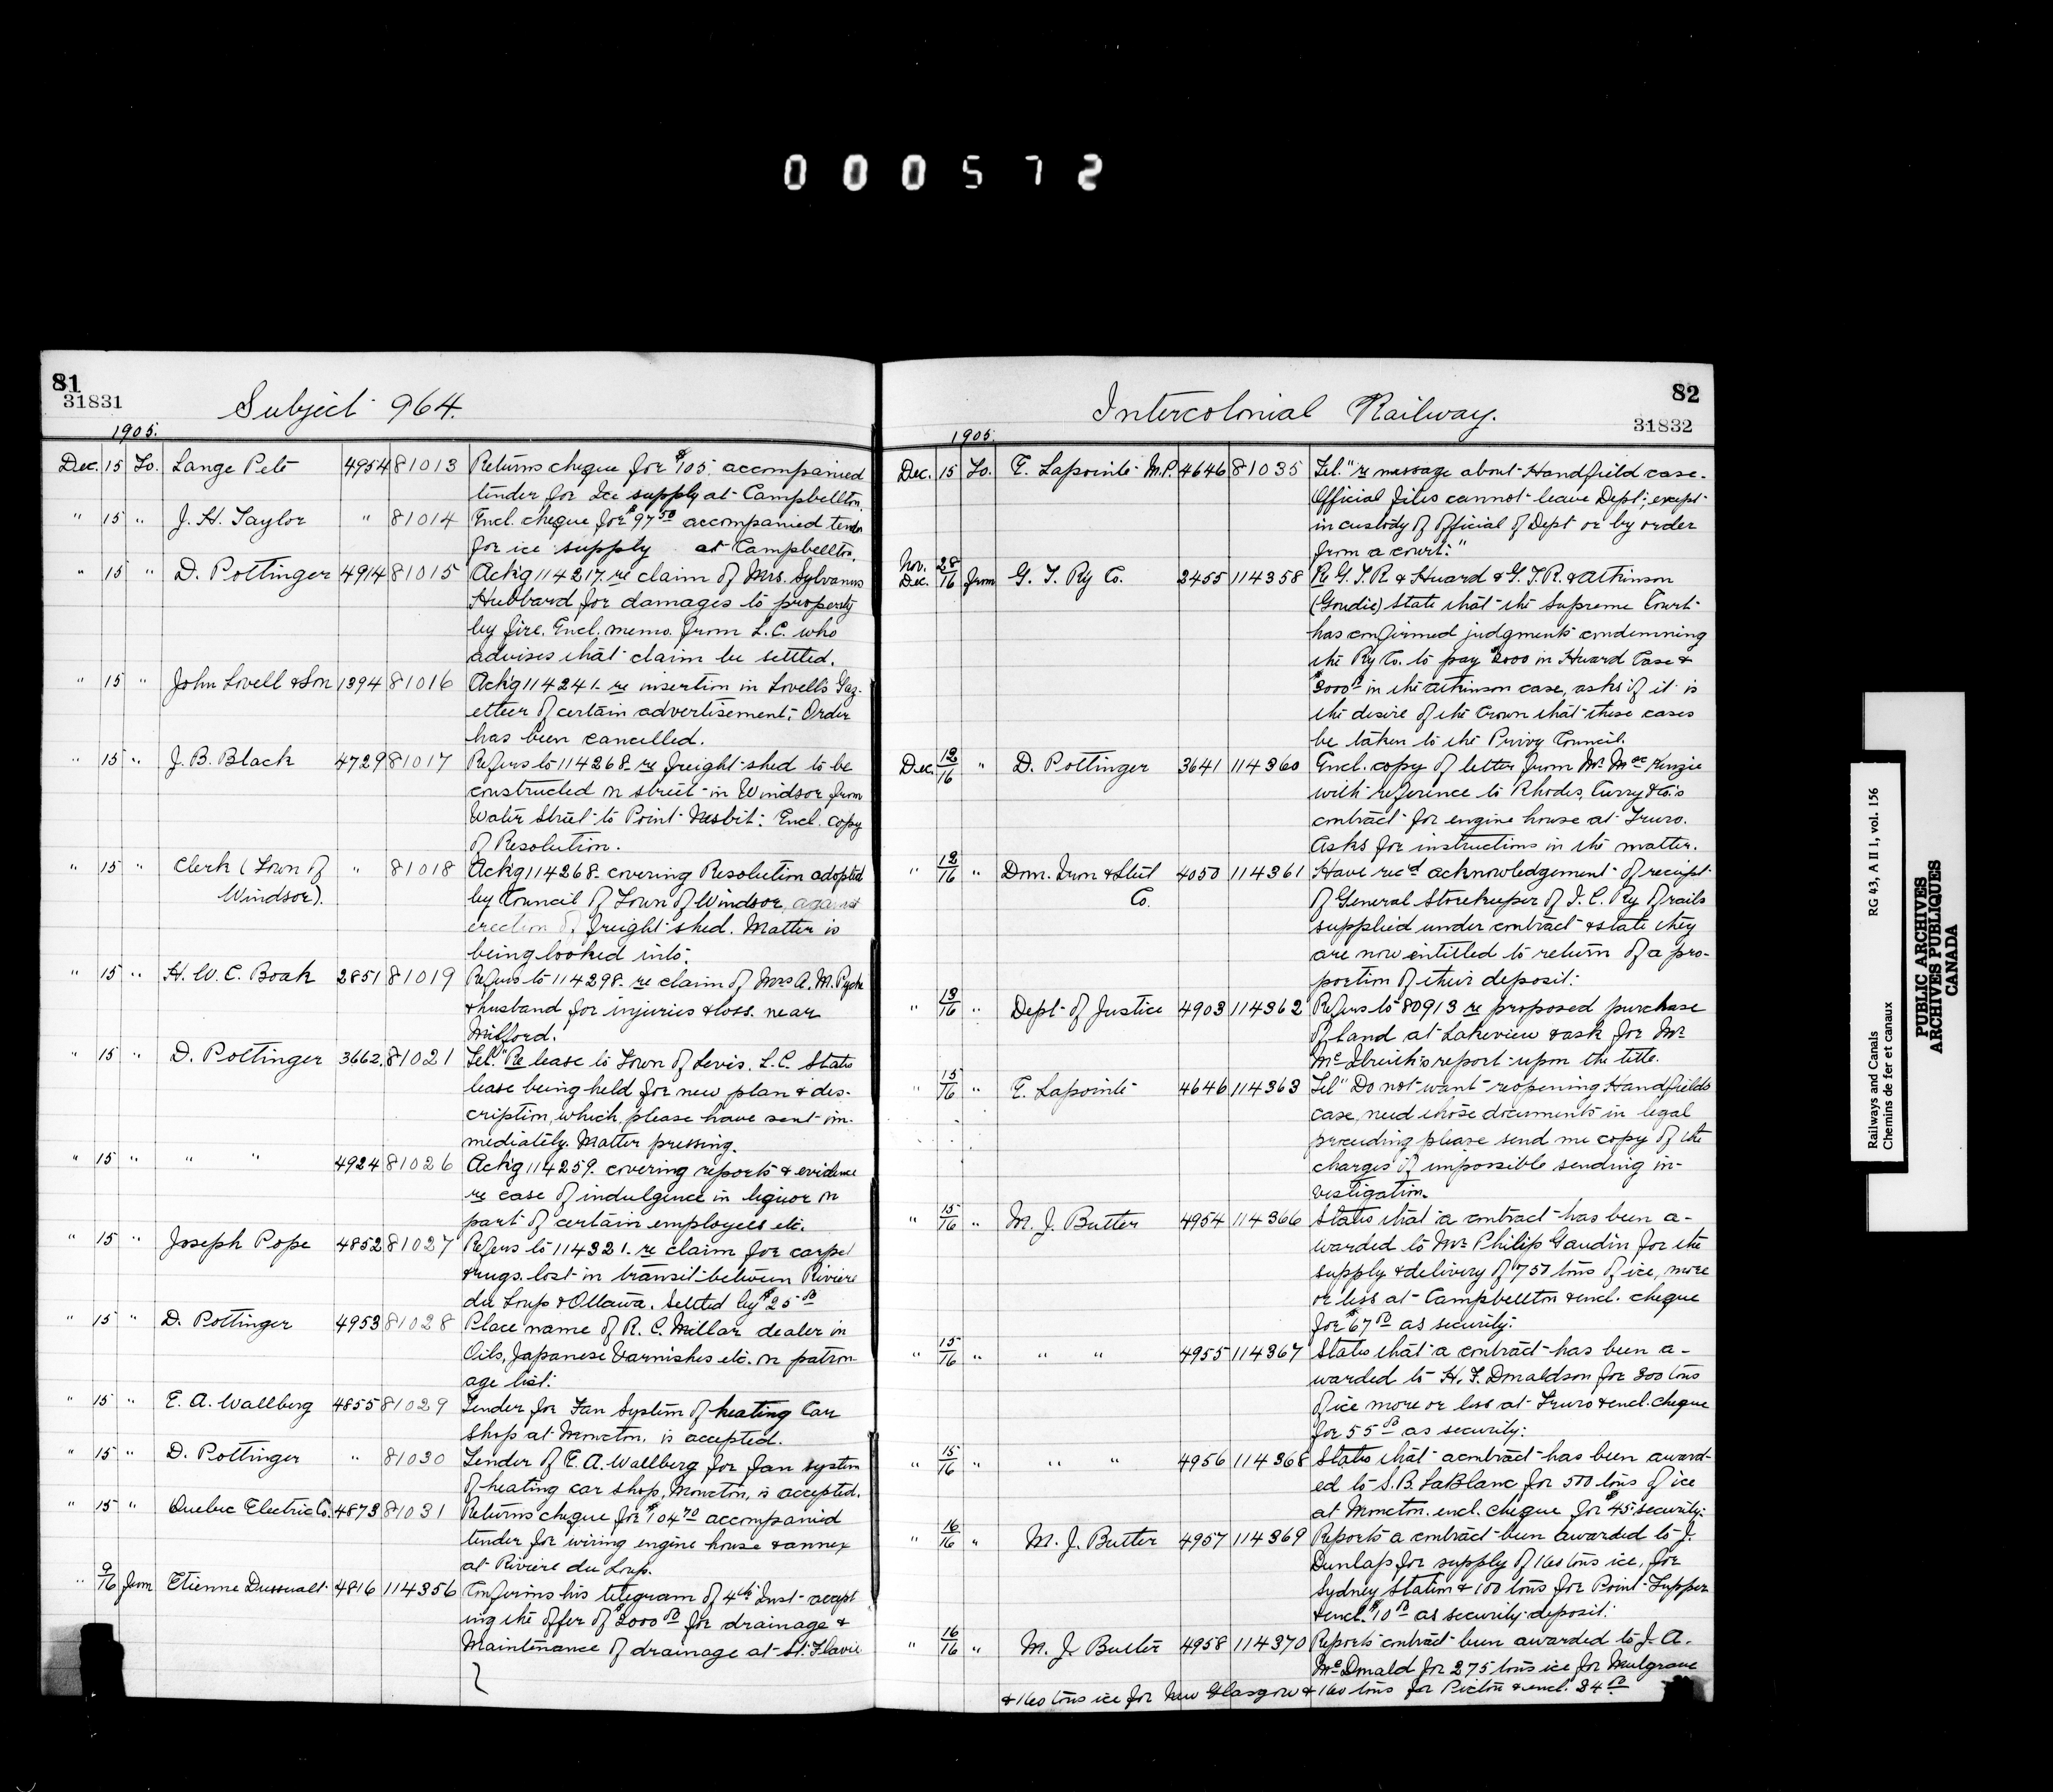 000572
81
31831
Subject 964.
1905.
Dec. 15 To. Lange Pete 4954 81013 Returns cheque for $105. accompanied
tender for Ice supply at Campbellton.
" 15 " J. H. Taylor " 81014 Encl. cheque for $97 50 accompanied tender
for ice supply at Campbellton.
" 15 " D. Pottinger 4914 81015 Ack'g 114217. re claim of Mrs. Sylvanus
Hubbard for damages to property
by fire. Encl. memo. from L.C. who
advises that claim be settled.
" 15 " John Lovell & Son 1394 81016 Ack'g 114241. re insertion in Lovell's Gaz-
etteer of certain advertisement. Order
has been cancelled.
" 15 " J. B. Black 4729 81017 Refers to 114268 re freight shed to be
constructed on street in Windsor from
Water Street to Point Nesbit. Encl. copy
of Resolution.
" 15 " Clerk (Town of " 81018 Ackg 114268. covering Resolution adopted
Windsor). by Council of Town of Windsor, against
erection of freight shed. Matter is
being looked into.
" 15 " H. W. C. Boak 2851 81019 Refers to 114298. re claim of Mrs A. M.
& husband for injuries & loss. near
Milford.
" 15 " D. Pottinger 3662. 81021 Tel. "Re lease to Town of Levis. L.C. States
lease being held for new plan & des-
cription, which, please have sent im-
mediately. Matter pressing.
" 15 " " " 4924 81026 Ack'g 114259. covering reports & evidence
re case of indulgence in liquor on
part of certain employees etc.
" 15 " Joseph Pope 4852 81027 Refers to 114321. re claim for carpet
& rugs. lost in transit between Riviere
du Loup & Ottawa. Settled by $25 00
" 15 " D. Pottinger 4953 81028 Place name of R. C. Millar dealer in
Oils, Japanese Varnishes etc. on patron-
age list.
" 15 " E. A. Wallberg 4855 81029 Tender for Fan System of heating Car
Shop at Moncton, is accepted.
" 15 " D. Pottinger " 81030 Tender of E. A. Wallberg for fan system
of heating car shop, Moncton, is accepted.
" 15 " Quebec Electric Co. 4873 81031 Returns cheque for $104 70 accompanied
tender for wiring engine house & annex
at Riviere du Loup.
" 9/16 from Etienne Dussault 4816 114356 Confirms his telegram of 4th Inst accept
ing the offer of $2000 00 for drainage &
Maintenance of drainage at St. Flavie
82
Intercolonial Railway.
31832
1905.
Dec. 15 To. E. Lapointe M.P. 4646 81035 Tel. "re message about Handfield case.
Official files cannot leave Dept. except
in custody of official of Dept or by order
from a court."
Nov. 28
Dec. 16 from G. T. Ry Co. 2455 114358 Re G. T. R. & Huard & G. T. R. & Atkinson
(Goudie) State that the Supreme Court
has confirmed judgments condemning
the Ry Co. to pay $2000 in Huard Case &
$3000 00 in the Atkinson case, asks if it is
the desire of the Crown that these cases
be taken to the Privy Council.
Dec. 12/16 " D. Pottinger 3641 114360 Encl. copy of letter from Mr. MacKenzie
with reference to Rhodes, Curry & Co.'s
contract for engine house at Truro.
Asks for instructions in the matter.
" 12/16 " Dom. Iron & Steel 4050 114361 Have rec'd acknowledgement of receipt
Co. of General Storekeeper of I. C. Ry of rails
supplied under contract & state they
are now entitled to return of a pro-
portion of their deposit.
" 13/16 " Dept. of Justice 4903 114362 Refers to 80913 re proposed purchase
of land at Lakeview & ask for Mr
report upon the title.
15/16 " E. Lapointe 4646 114363 Tel "Do not want reopening Handfields
case, need those documents in legal
proceeding please send me copy of the
charges if impossible sending in-
vestigation.
" 15/16 " M. J. Butler 4954 114366 States that a contract has been a-
warded to Mr Philip Gaudin for the
supply & delivery of 750 tons of ice, more
or less at Campbellton & encl. cheque
for $67 00 as security.
" 15/16 " " " 4955 114367 States that a contract has been a-
warded to H. F. Donaldson for 300 tons
of ice more or less at Truro & encl. cheque
for 55 00 as security.
" 15/16 " " " 4956 114368 States that a contract has been award-
ed to S. B. LaBlanc for 500 tons of ice
at Moncton. encl. cheque for $45 security.
" 16/16 " M. J. Butler 4957 114369 Reports a contract been awarded to J.
Dunlap for supply of 160 tons ice, for
Sydney Station & 100 tons for Point Tupper
& encl. $10 00 as security deposit.
" 16/16 " M. J. Butler 4958 114370 Reports contract been awarded to J. A.
McDonald for 275 tons ice for Mulgrave
& 160 tons ice for New Glasgow & 160 tons for Pictou & encl. 34 00
Railways and Canals RG 43, A II 1, vol. 156
Chemins de fer et canaux
PUBLIC ARCHIVES
ARCHIVES PUBLIQUES
CANADA